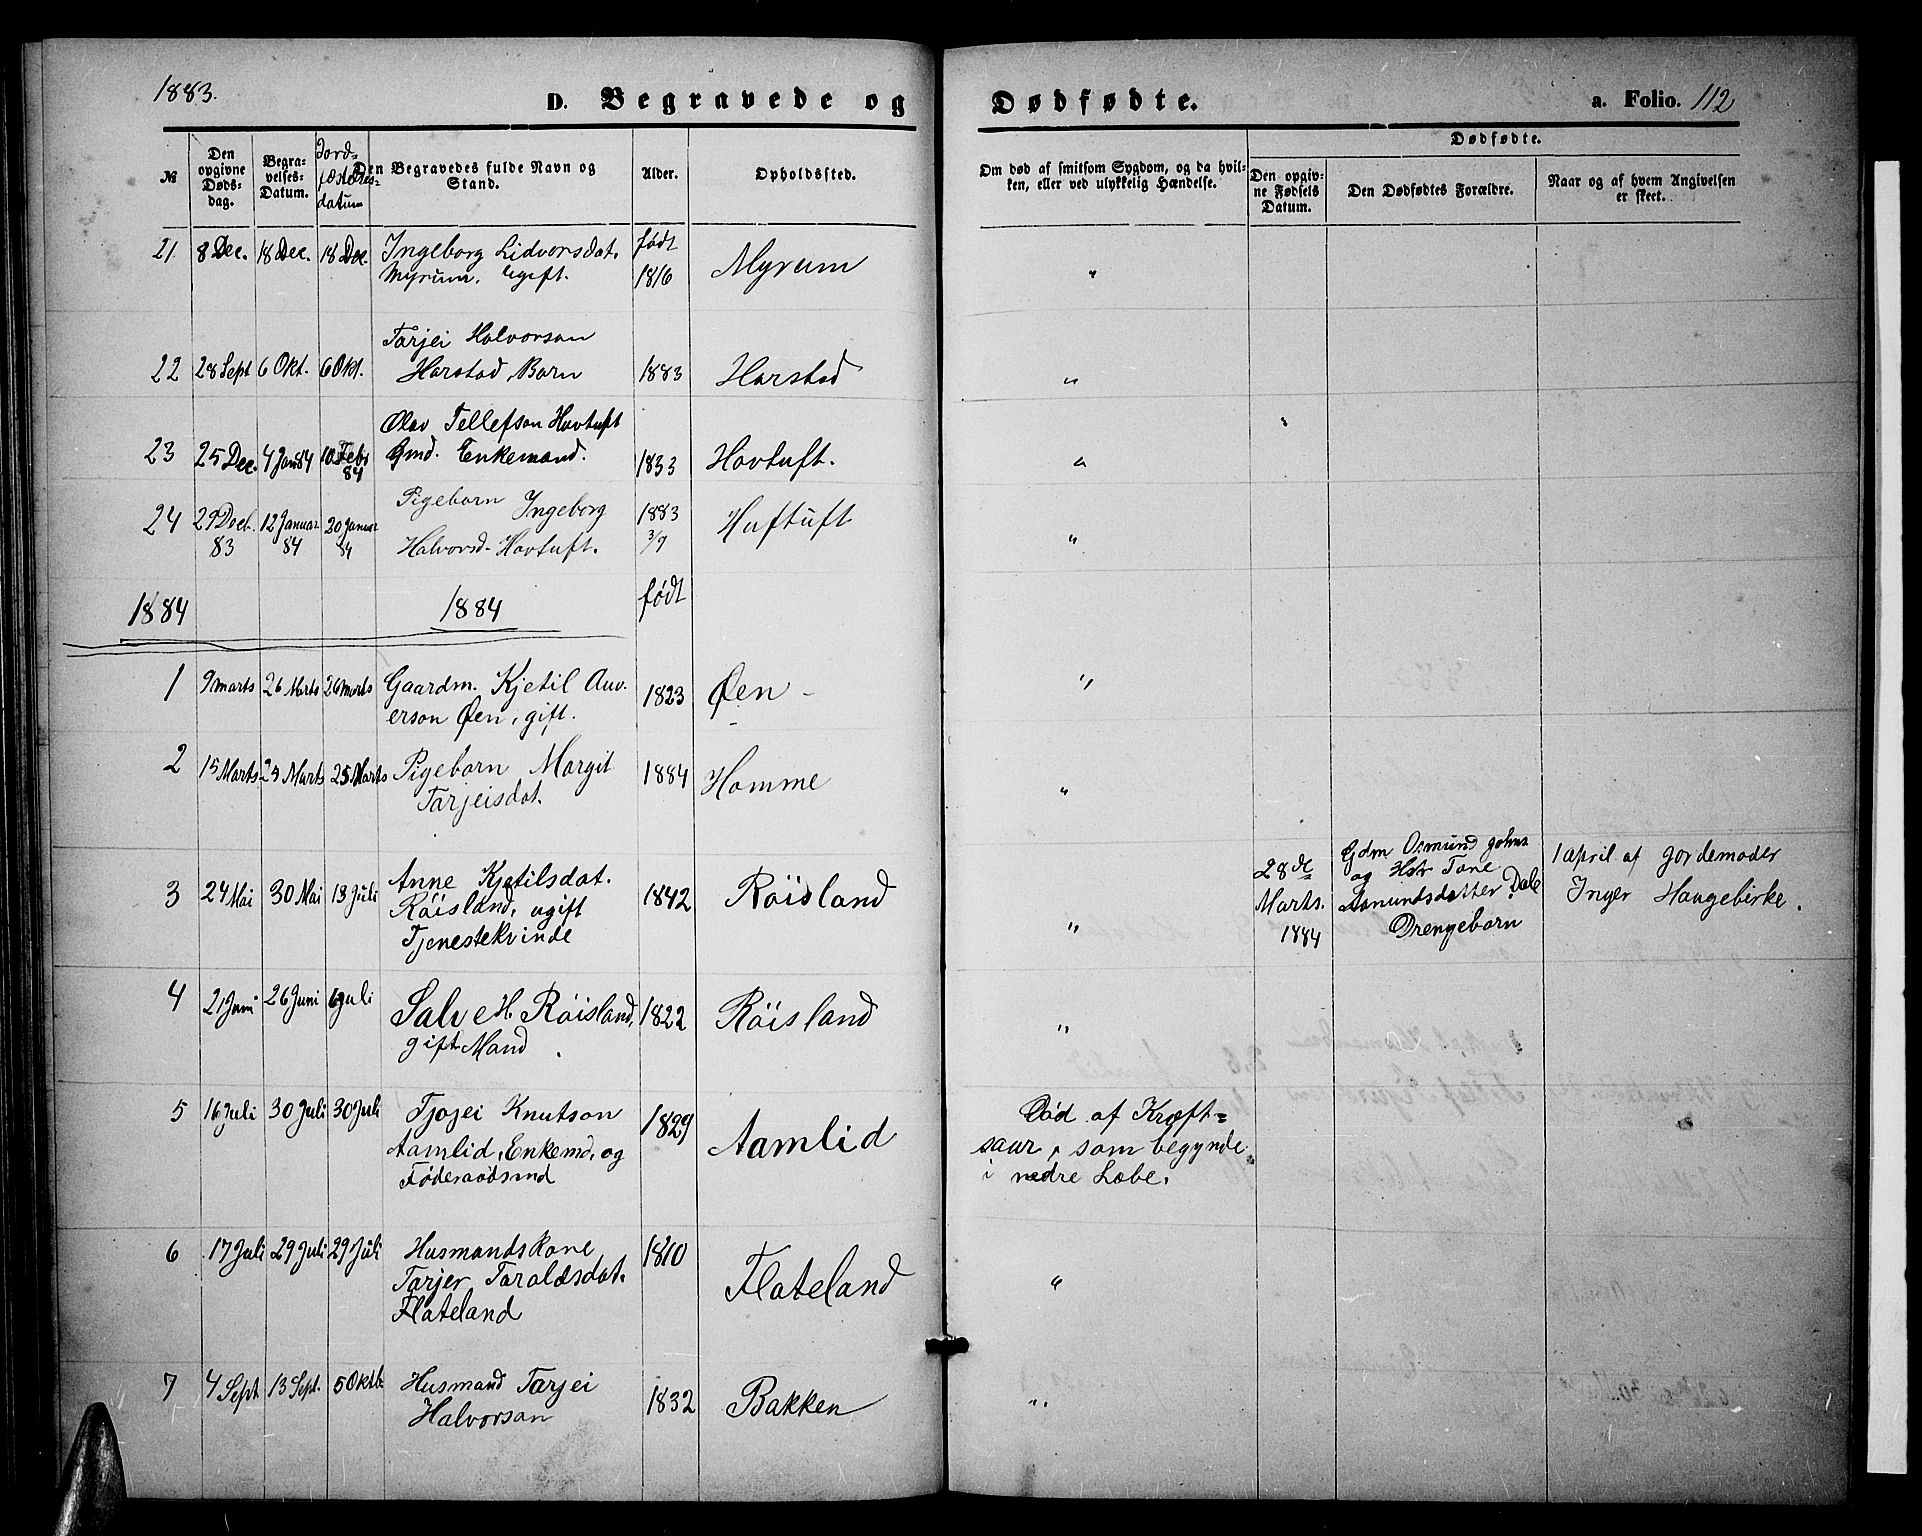 1883.
D. Begravede og Dødfødte.
a. Folio. 112
№
Den opgivne Døds-dag.
Begra-velses-Datum.
Jord-fæstelses-datum
Den Begravedes fulde Navn og Stand.
Alder.
Opholdssted.
Om død af smitsom Sygdom, og da hvil-
ken, eller ved ulykkelig Hændelse.
Dødfødte.
Den opgiv-ne Fødsels Datum.
Den Dødfødtes Forældre.
Naar og af hvem Angivelsen er skeet.
21 8 Dec. 18 Dec. 18 Dec. Ingeborg Lidvorsdat. født
Myrum, Ugift. 1816 Myrum "
Tarjei Halvorson
22 28 Sept 6 Okt. 6 Okt. Harstad, Barn 1883 Harstad "
Olav Tellefson Hovtuft
23 25 Dec. 4 Jan 84 10 Febr 84 Gmd. Enkemand. 1833 Hovtuft. "
Pigebarn Ingeborg 1883
24 29 Decb. 83 12 Januar 84 20 Januar 84 Halvorsd. Hovtuft. 3/9 Huftuft "
1884 1884 født
1 9 Marts 26 Marts 26 Marts Gaardm. Kjetil Auv-
erson Øen, gift. 1823 Øen - "
2 15 Marts 25 Marts 25 Marts Pigebarn Margit
Tarjeisdat. 1884 Homme "
3 24 Mai 30 Mai 13 Juli Anne Kjetilsdat.
Röisland, ugift
Tjenestekvinde 1842 Röisland "
28de
Marts.
1884
Gdm Osmund Johns
og Hstr Tone
Aamundsdatter Dale
Drengebarn
1 April af Jordemoder
Inger Haugebirke.
4 21 Juni 26 Juni 6 Juli Salve H. Röisland,
gift Mand. 1822 Röisland "
5 16 Juli 30 Juli 30 Juli Tjojei Knutson
Aamlid, Enkemd, og
Føderaadsmd 1829 Aamlid
Død af Kræft-
saar, som begynde
i nedre Læbe.
6 17 Juli 29 Juli 29 Juli Husmandskone
Tarjer Taraldsdat.
Flateland 1810 Flateland "
7 4 Sept 13 Sept. 5 Oktb. Husmand Tarjei
Halvorsan 1832 Bakken "